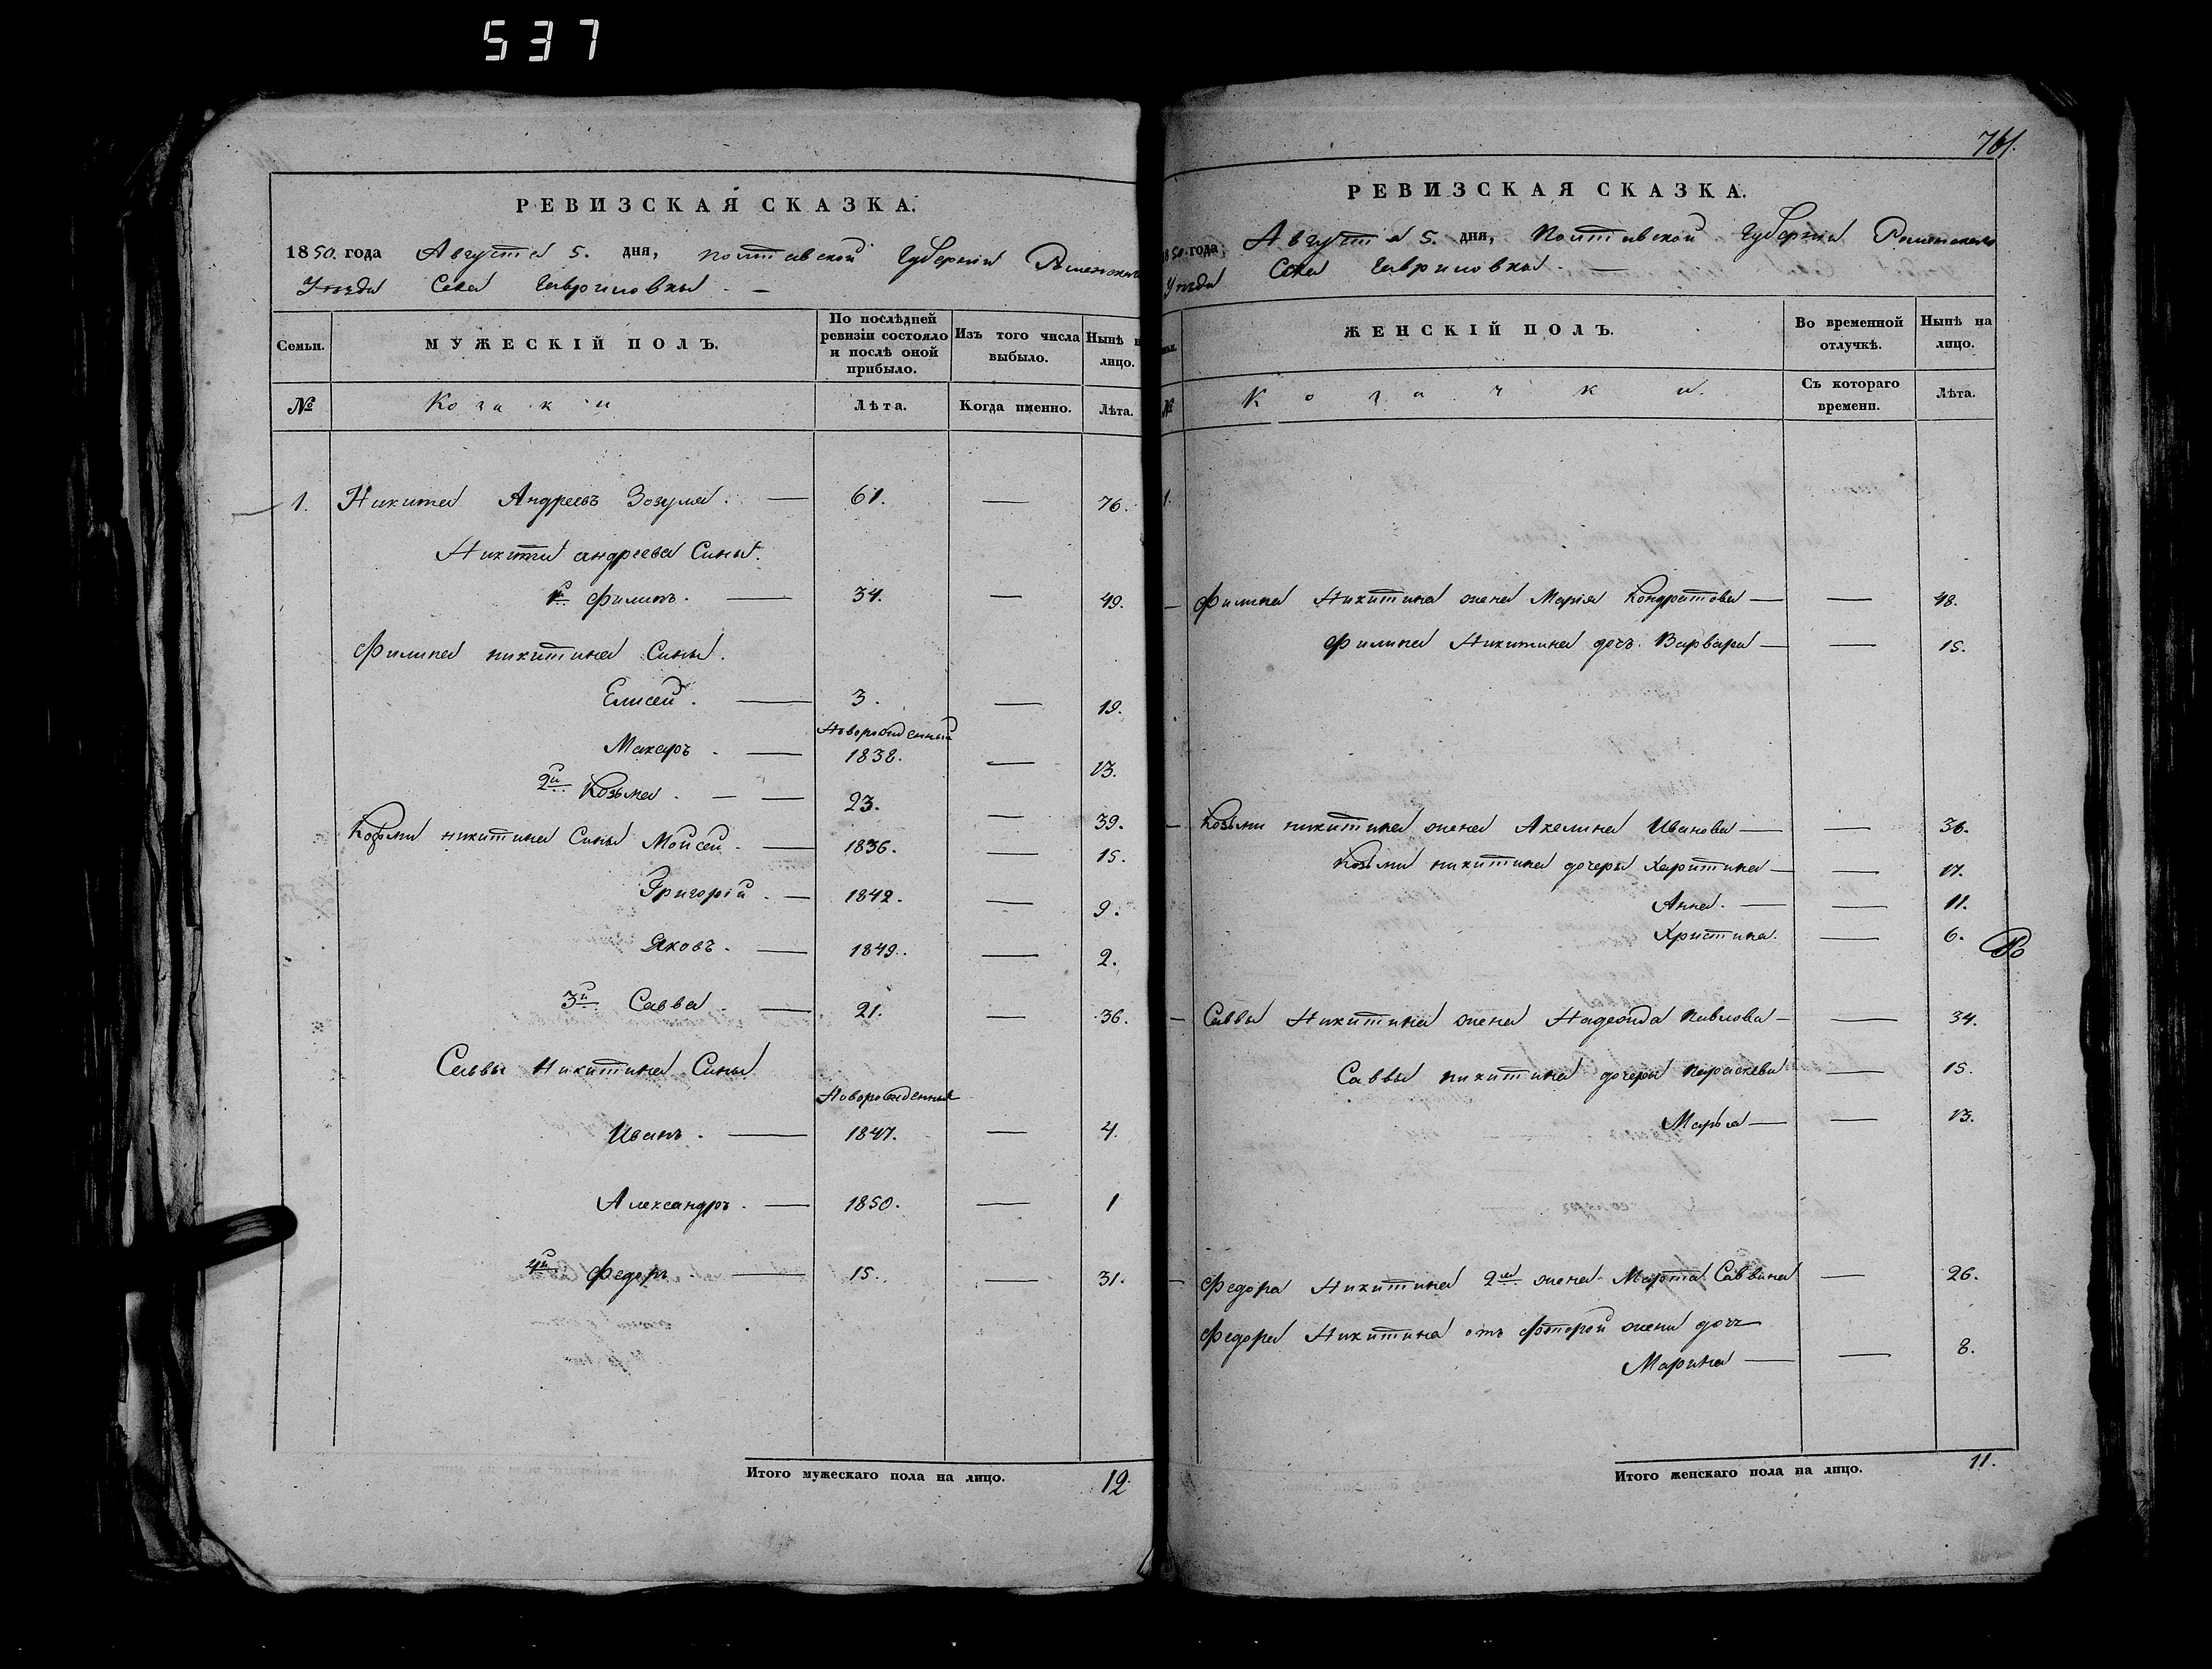 537
761.
РЕВИЗСКАЯ СКАЗКА.
1850. года Августа 5. дня, Полтавской Губерніи Роменскаго
Уѣзда Села Гавриловки. —
Семьи. МУЖЕСКІЙ ПОЛЪ. По послѣдней ревизіи состояло и послѣ оной прибыло. Изъ того числа выбыло. Нынѣ н лицо.
№ Козаки Лѣта. Когда именно. Лѣта.
1. Никита Андреевъ Зозуля. — 61. — 76.
Никиты андреева Сины.
1й Филипъ. — 34. — 49.
Филипа никитина Сины.
Елисей. — 3. — 19.
Новорожденный
Макаръ. — 1838. — 13.
2й Козьма. — — 23. — 39.
Козьми никитина Сины Мойсей. — 1836. — 15.
Григорій. — 1842. — 9.
Яковъ. — 1849. — 2.
3й Савва. — 21. — 36.
Саввы Никитина Сины
Новорожденные
Иванъ. — 1847. — 4.
Александръ. — 1850. — 1
4й Федоръ. — 15. — 31.
Итого мужескаго пола на лицо. 12.
РЕВИЗСКАЯ СКАЗКА.
1850. года Августа 5. дня, Полтавской Губерніи Роменскаго
Уѣзда Села Гавриловки. —
ЖЕНСКІЙ ПОЛЪ. Во временной отлучкѣ. Нынѣ на лицо.
№ Козачки. Съ котораго времени. Лѣта.
1.
— Филипа Никитина жена Марія Кондратова — — 48.
Филипа Никитина дочь Варвара — — 15.
— Козьми никитина жена Акелина Иванова — — 36.
Козьми никитина дочеры Харитина — — 17.
Анна. — — 11.
Христина. — 6.
— Саввы Никитина жена Надежда Павлова — — 34.
Саввы никитина дочеры Параскева — 15.
Марья — — 13.
— Федора Никитина 2я жена Марта Саввина — 26.
Федора Никитина отъ фторой жени дочь
Марина — — 8.
Итого женскаго пола на лицо. 11.